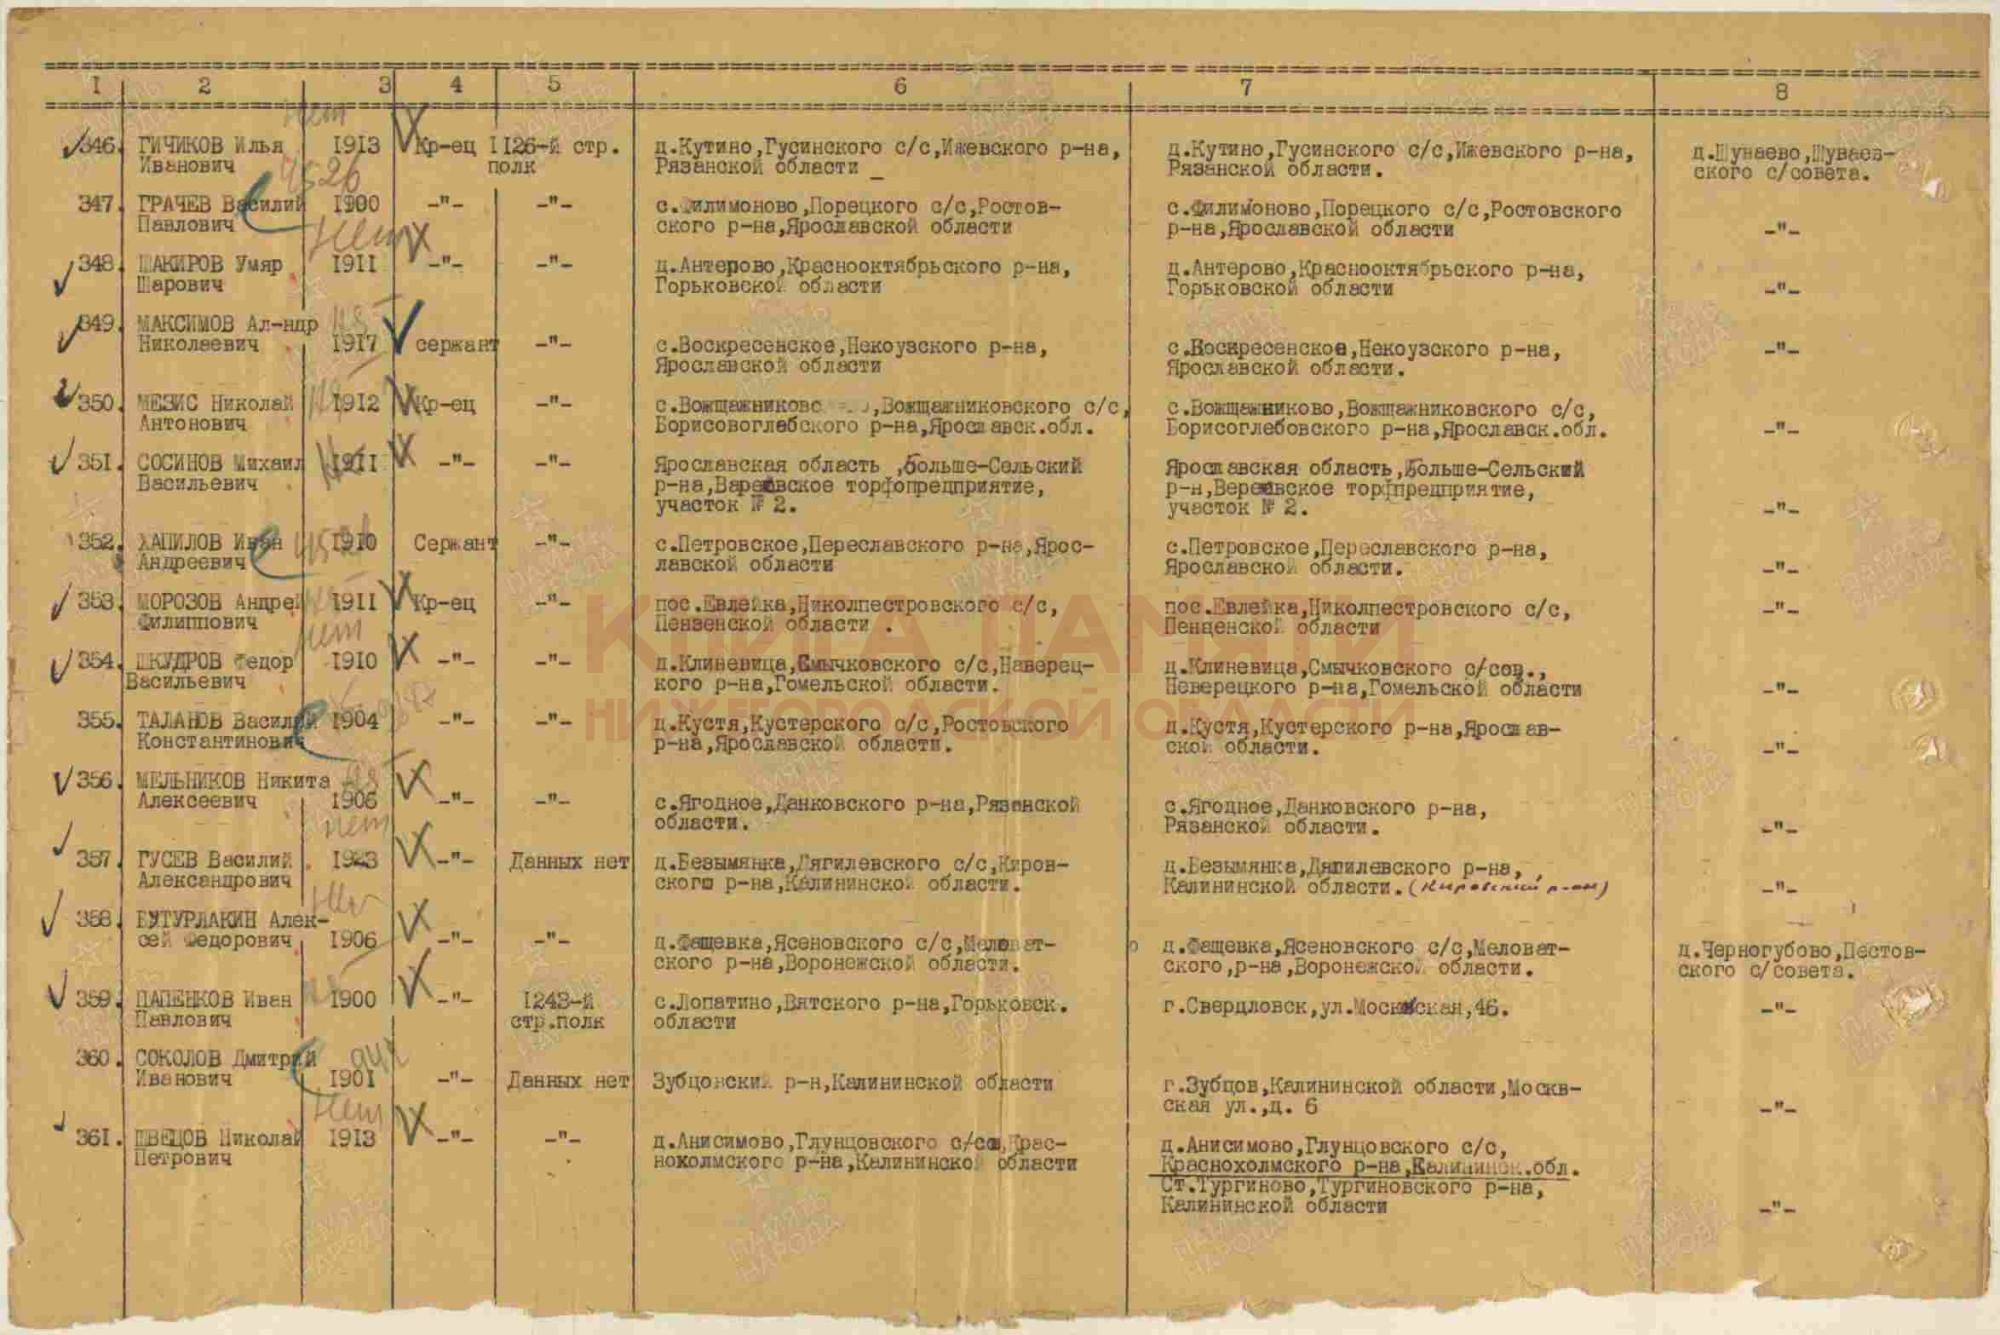 1 2 3 4 5 6 7 8
346. ГИЧИКОВ Илья 1913 Кр-ец 1126-й стр. д.Кутино,Гусинского с/с,Ижевского р-на, д.Кутино,Гусинского с/с,Ижевского р-на, д.Шуваево,Шуваев-
Иванович полк Рязанской области _ Рязанской области. ского с/совета.
347. ГРАЧЕВ Василий 1900 -"- -"- с.Филимоново,Порецкого с/с,Ростов- с.Филимоново,Порецкого с/с,Ростовского
Павлович ского р-на,Ярославской области р-на,Ярославской области -"-
348. ШАКИРОВ Умяр 1911 -"- -"- д.Антерово,Краснооктябрьского р-на, д.Антерово,Краснооктябрьского р-на,
Шарович Горьковской области Горьковской области -"-
349. МАКСИМОВ Ал-ндр
Николаевич 1917 сержант -"- с.Воскресенское,Некоузского р-на, с.Воскресенское,Некоузского р-на, -"-
Ярославской области Ярославской области.
350. МЕЗИС Николай 1912 Кр-ец -"- с.Вожщажниково,Вожщажниковского с/с, с.Вожщажниково,Вожщажниковского с/с,
Антонович Борисовоглебского р-на,Ярославск.обл. Борисоглебовского р-на,Ярославск.обл. -"-
351. СОСИНОВ Михаил 1911 -"- -"- Ярославская область ,Больше-Сельский Ярославская область,Больше-Сельский
Васильевич р-на,Варевское торфопредприятие, р-н,Веревское торфпредприятие,
участок № 2. участок № 2. -"-
352. ХАПИЛОВ Иван 1910 Сержант -"- с.Петровское,Переславского р-на,Ярос- с.Петровское,Переславского р-на,
Андреевич лавской области Ярославской области. -"-
353. МОРОЗОВ Андрей 1911 Кр-ец -"- пос.Евлейка,Николпестровского с/с, пос.Евлейка,Николпестровского с/с, -"-
Филиппович Пензенской области . Пенценской области
354. ШКУДРОВ Федор 1910 -"- -"- д.Клиневица,Смычковского с/с,Наверец- д.Клиневица,Смычковского с/сов.,
Васильевич кого р-на,Гомельской области. Неверецкого р-на,Гомельской области -"-
355. ТАЛАНОВ Василий 1904 -"- -"- д.Кустя,Кустерского с/с,Ростовского д.Кустя,Кустерского р-на,Ярослав-
Константинович р-на,Ярославской области. ской области. -"-
356. МЕЛЬНИКОВ Никита
Алексеевич 1906 -"- -"- с.Ягодное,Данковского р-на,Рязанской с.Ягодное,Данковского р-на,
нет области. Рязанской области. -"-
357. ГУСЕВ Василий 1923 -"- Данных нет д.Безымянка,Дягилевского с/с,Киров- д.Безымянка,Дягилевского р-на,
Александрович ского р-на,Калининской области. Калининской области. (Кировский р-он) -"-
358. БУТУРЛАКИН Алек-
сей Федорович 1906 -"- -"- д.Фащевка,Ясеновского с/с,Меловат- д.Фащевка,Ясеновского с/с,Меловат- д.Черногубово,Пестов-
ского р-на,Воронежской области. ского,р-на,Воронежской области. ского с/совета.
359. ПАПЕНКОВ Иван 1900 -"- 1243-й с.Лопатино,Вятского р-на,Горьковск. г.Свердловск,ул.Московская,46. -"-
Павлович стр.полк области
360. СОКОЛОВ Дмитрий
Иванович 1901 -"- Данных нет Зубцовский р-н,Калининской области г.Зубцов,Калининской области,Москв-
нет ская ул.,д. 6 -"-
361. ШВЕЦОВ Николай 1913 -"- -"- д.Анисимово,Глунцовского с/сов,Крас- д.Анисимово,Глунцовского с/с,
Петрович нохолмского р-на,Калининской области Краснохолмского р-на,Калининск.обл.
Ст.Тургиново,Тургиновского р-на,
Калининской области -"-
КНИГА ПАМЯТИ
НИЖЕГОРОДСКОЙ ОБЛАСТИ